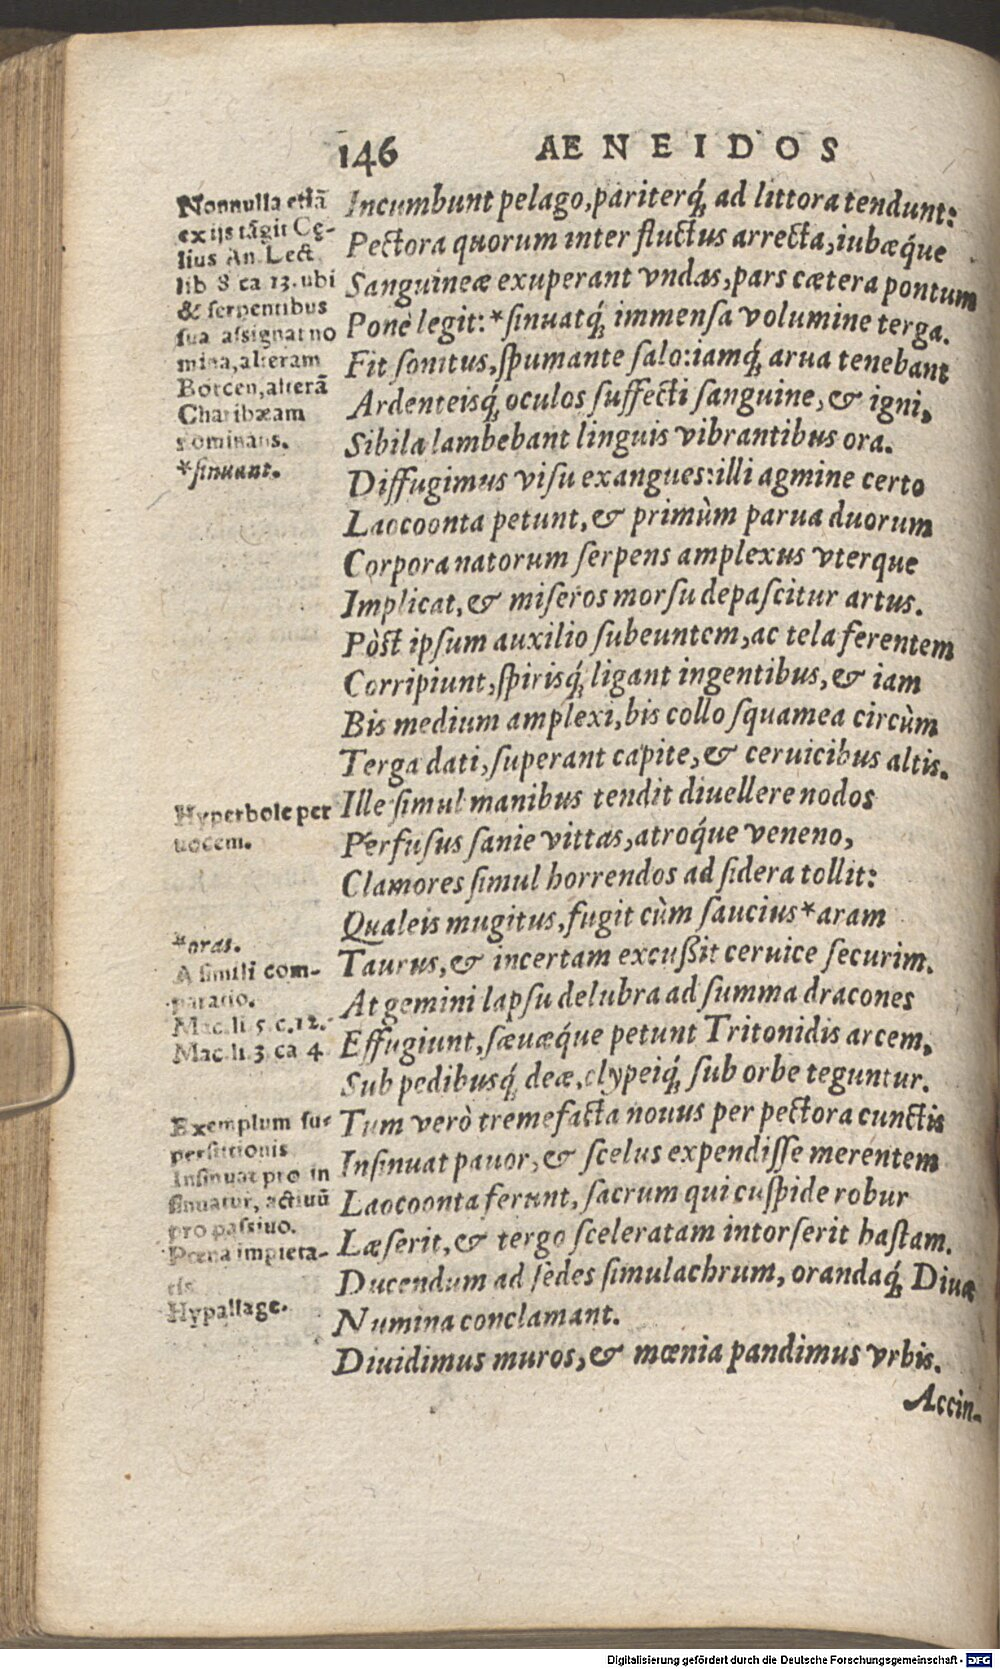 146 AE N E I D O S
Nonnulla etiã
ex ijs tãgit Cę-
lius An. Lect.
lib 8 ca 13. ubi
& serpentibus
sua assignat no
mina, alteram
Borcen, alterã
Charibæam
nominans.
*sinuant.
Hyperbole per
uocem.
*oras.
A simili com-
paratio.
Mac. li 5. c. 12.
Mac. li 3 ca 4
Exemplum su-
perstitionis
Insinuat pro in
sinuatur, actiuũ
pro passiuo.
Pœna impieta-
tis
Hypallage.
Incumbunt pelago, pariterq́; ad littora tendunt:
Pectora quorum inter fluctus arrecta, iubæq́ue
Sanguineæ exuperant vndas, pars cætera pontum
Ponè legit: *sinuatq́; immensa volumine terga.
Fit sonitus, spumante salo: iamq́; arua tenebant
Ardenteisq́; oculos suffecti sanguine, & igni,
Sibila lambebant linguis vibrantibus ora.
Diffugimus visu exangues: illi agmine certo
Laocoonta petunt, & primùm parua duorum
Corpora natorum serpens amplexus vterque
Implicat, & miseros morsu depascitur artus.
Pòst ipsum auxilio subeuntem, ac tela ferentem
Corripiunt, spirisq́; ligant ingentibus, & iam
Bis medium amplexi, bis collo squamea circùm
Terga dati, superant capite, & ceruicibus altis.
Ille simul manibus tendit diuellere nodos
Perfusus sanie vittas, atroq́ue veneno,
Clamores simul horrendos ad sidera tollit:
Qualeis mugitus, fugit cùm saucius *aram
Taurus, & incertam excußit ceruice securim.
At gemini lapsu delubra ad summa dracones
Effugiunt, sæuæq́ue petunt Tritonidis arcem,
Sub pedibusq́; deæ, clypeiq́; sub orbe teguntur.
Tum verò tremefacta nouus per pectora cunctis
Insinuat pauor, & scelus expendisse merentem
Laocoonta ferunt, sacrum qui cuspide robur
Læserit, & tergo sceleratam intorserit hastam.
Ducendum ad sedes simulachrum, orandaq́; Diuæ
Numina conclamant.
Diuidimus muros, & mœnia pandimus vrbis.
Accin-
Digitalisierung gefördert durch die Deutsche Forschungsgemeinschaft - DFG